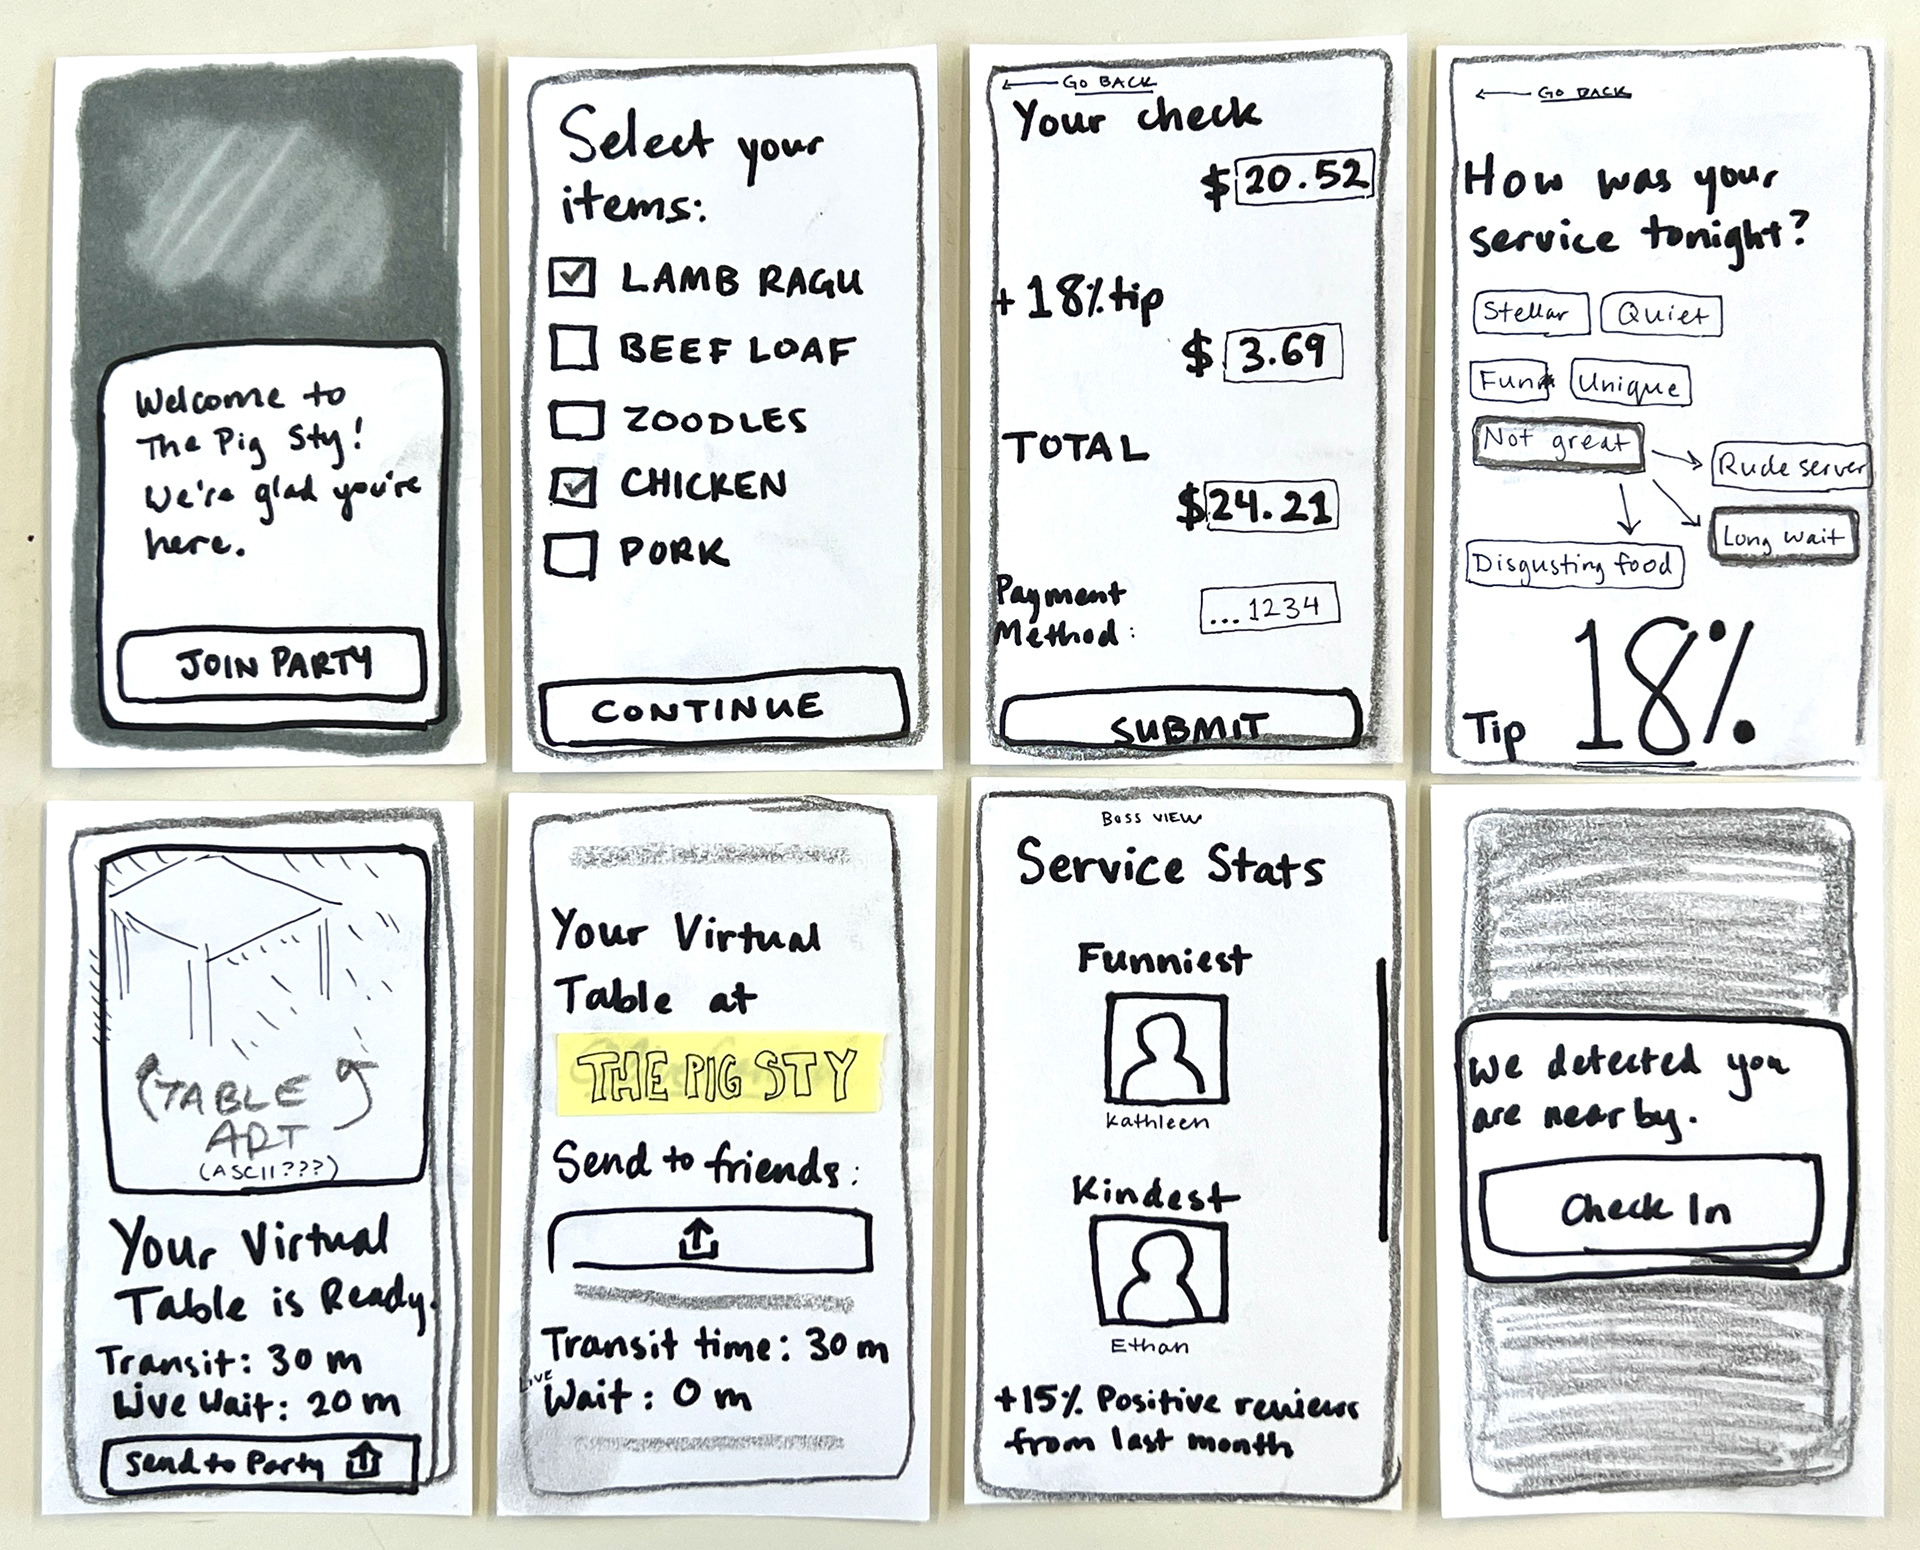 Welcome to
The Pig Sty!
We're glad you're
here.
JOIN PARTY
Select your
items:
LAMB RAGU
BEEF LOAF
ZOODLES
CHICKEN
PORK
CONTINUE
GO BACK
Your check
$ 20.52
+ 18% tip
$ 3.69
TOTAL
$24.21
Payment
Method:
...1234
SUBMIT
GO BACK
How was your
service tonight?
Stellar Quiet
Funny Unique
Not great
Rude server
Long wait
Disgusting food
Tip 18%
(TABLE
ART
(ASCII???)
Your Virtual
Table is Ready.
Transit: 30 m
Live Wait: 20 m
Send to Party
Your Virtual
Table at
THE PIG STY
Send to friends:
Transit time: 30 m
LIVE
Wait: 0 m
BOSS VIEW
Service Stats
Funniest
Kathleen
Kindest
Ethan
+15% Positive reviews
from last month
We detected you
are nearby.
Check In